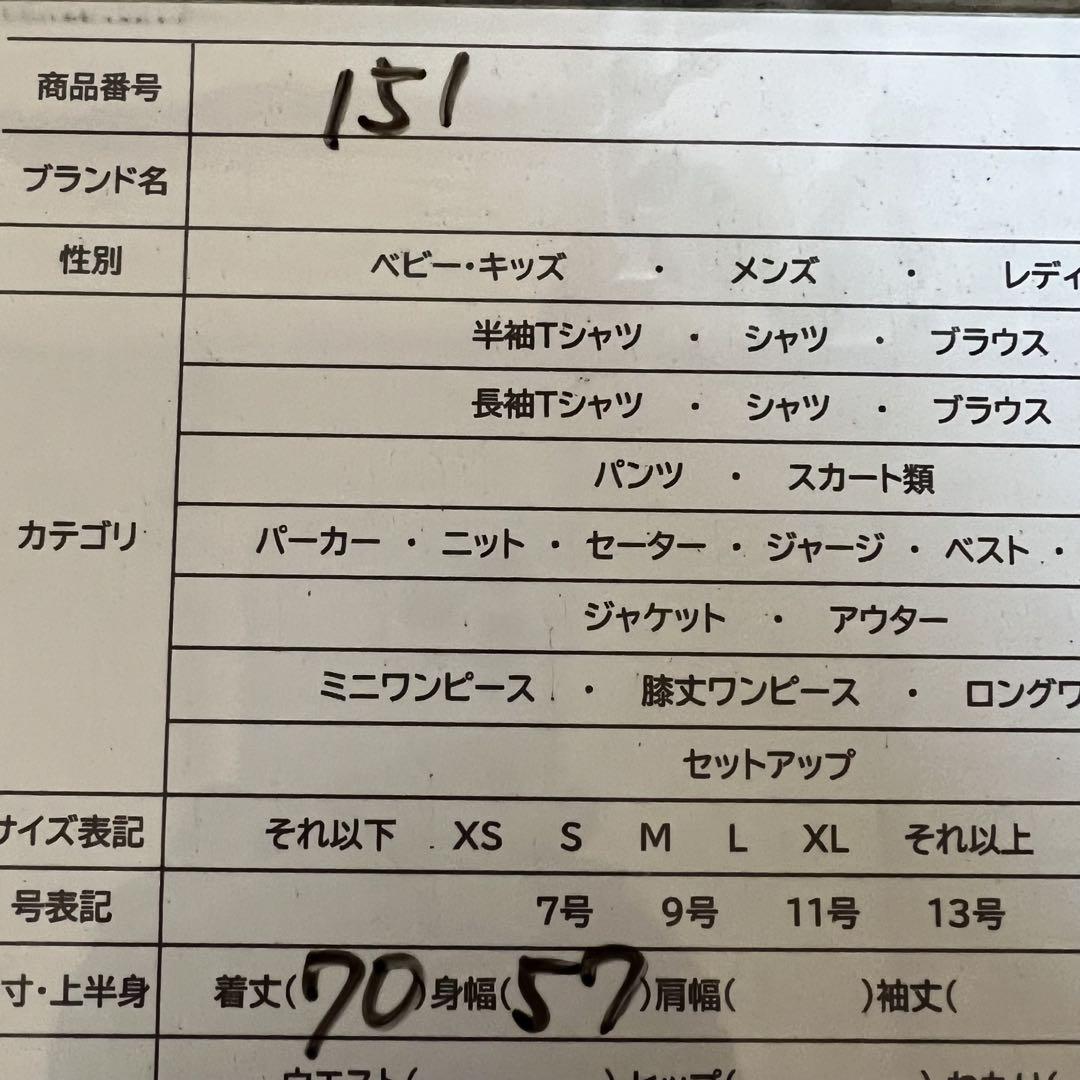 商品番号 151
ブランド名
性別 ベビー・キッズ ・ メンズ ・ レディ
半袖Tシャツ ・ シャツ ・ ブラウス
長袖Tシャツ ・ シャツ ・ ブラウス
パンツ ・ スカート類
カテゴリ パーカー ・ ニット ・ セーター ・ ジャージ ・ ベスト ・
ジャケット ・ アウター
ミニワンピース ・ 膝丈ワンピース ・ ロングワ
セットアップ
サイズ表記 それ以下 XS S M L XL それ以上
号表記 7号 9号 11号 13号
寸・上半身 着丈(70)身幅(57)肩幅( )袖丈(
ウエスト( )ヒップ( )わたり(